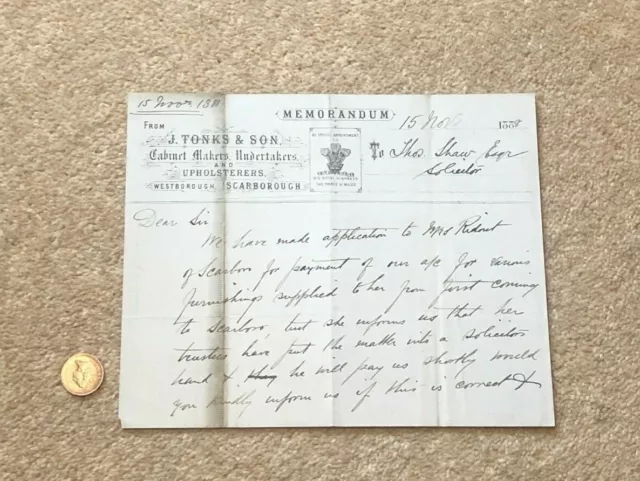 15 Novr 188
MEMORANDUM
FROM
15 Nov 1888
J. TONKS & SON,
Cabinet Makers, Undertakers,
AND
UPHOLSTERERS.
WESTBOROUGH, SCARBOROUGH
BY SPECIAL APPOINTMENT
TO
HIS ROYAL HIGHNESS
THE PRINCE OF WALES
To Thos. Shaw Esqr
Solicitor
Dear Sir
We have made application to Mrs Ridout
of Scarboro for payment of our a/c for various
furnishings supplied to her from first coming
to Scarboro, but she informs us that her
trustees have put the matter into a solicitors
hand & they he will pay us shortly would
you kindly inform us if this is correct &